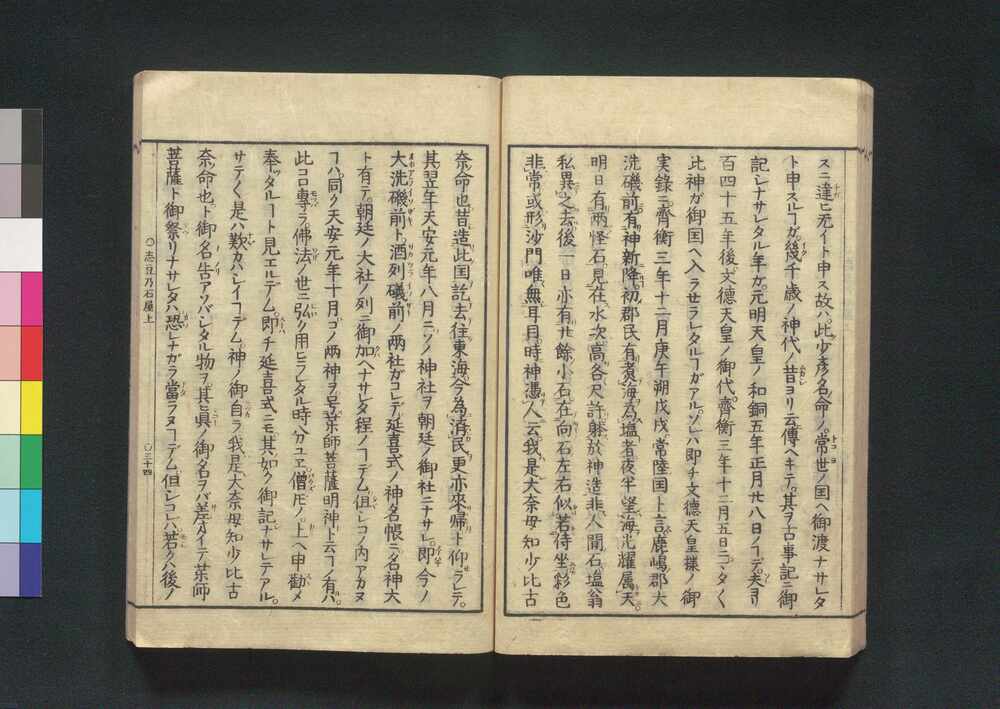 スニ達ヒ无イト申ス故ハ此少彦名命ノ常世ノ国ヘ御渡ナサレタ
ト申スルヿガ幾千歳ノ神代ノ昔ヨリ云傳ヘキテ其ヲ古事記ニ御
記シナサレタル年ガ元明天皇ノ和銅五年正月廿八日ノヿデ夫ヨリ
百四十五年後文德天皇ノ御代齊衡三年十二月五日ニフタヽ
比神ガ御国ヘ入ラセラレタルヿガアルソレハ即チ文德天皇樣ノ御
実錄ニ齊衡三年十二月庚午朔戊戌常陸国ト言鹿嶋郡大
洗磯前有神新降初郡民有煮海為塩者夜半望海光耀属天
明日有両怪石見在水次高各尺許躰於神造非人間石塩翁
私異之去後一日亦有廿餘小石在向石左右似若侍坐彩色
非常或形沙門唯無耳目時神憑人云我是大奈母知少比古
奈命也昔造此国訖去往東海今為済民更亦來帰ト仰ラレテ
其翌年天安元年八月ニソノ神社ヲ朝廷ノ御社ニナサレ即今ノ
大洗磯前ト酒列磯前ノ两社ガコレデ延喜式ノ神名帳ニ名神大
ト有テ朝廷ノ大社ノ列ニ御加ヘナサレタ程ノヿデム但シコノ内アカヌ
ヿハ同ク天安元年十月ゴノ两神ヲ号藥師菩薩明神ト云ヿノ有ハ
此コロ專ラ佛法ノ世ニ弘ク用ヒラレタル時分ユヱ僧𪜈ノ上ヘ申勸メ
奉ツタルヿト見エルデム即チ延喜式ニモ其如ク御記ナサレテアル
サテヽ是ハ歎カハシイヿデム神ノ御自ラ我是大奈母知少比古
奈命也ト御名告アソバシタル物ヲ其眞ノ御名ヲバ差オイテ藥師
菩薩ト御祭リナサレタハ恐レナガラ當ラヌヿデム但シコレハ若クハ後ノ
○志豆乃石屋上
○三十四